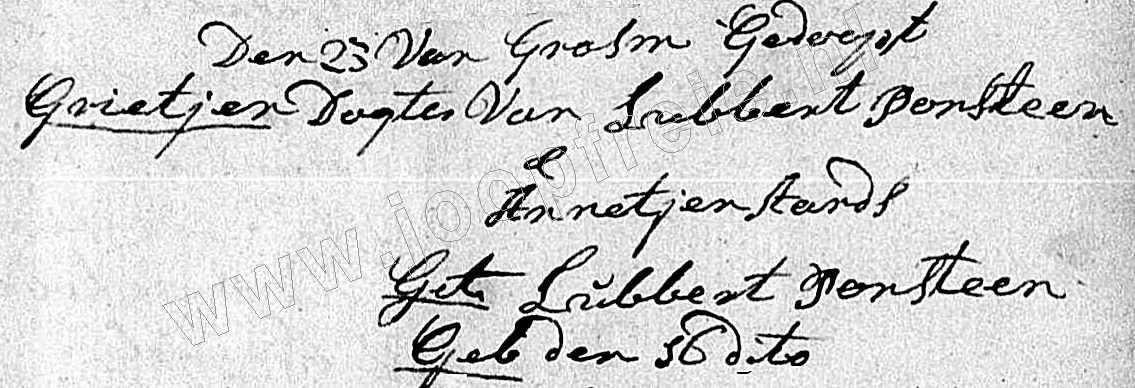 Den 23 Van Grasm Gedoopt
Grietjen Dogter Van Lubbert Ponsteen
&
Annetjen Aards
Get. Lubbert Ponsteen
Geb den 16 dito
www.joopfreie.nl